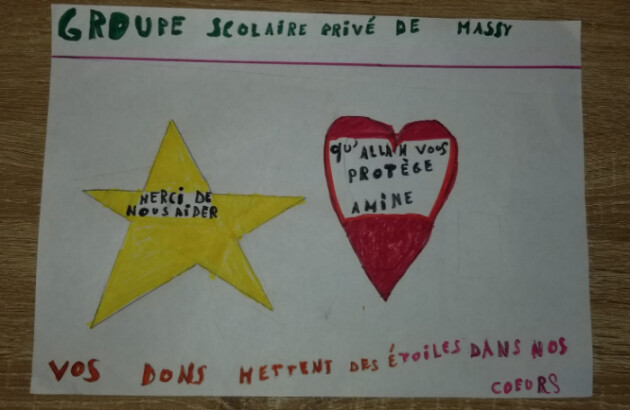 GROUPE SCOLAIRE PRIVÉ DE MASSY
MERCI DE
NOUS AIDER
QU'ALLAH VOUS
PROTÈGE
AMINE
VOS DONS METTENT DES ÉTOILES DANS NOS
COEURS